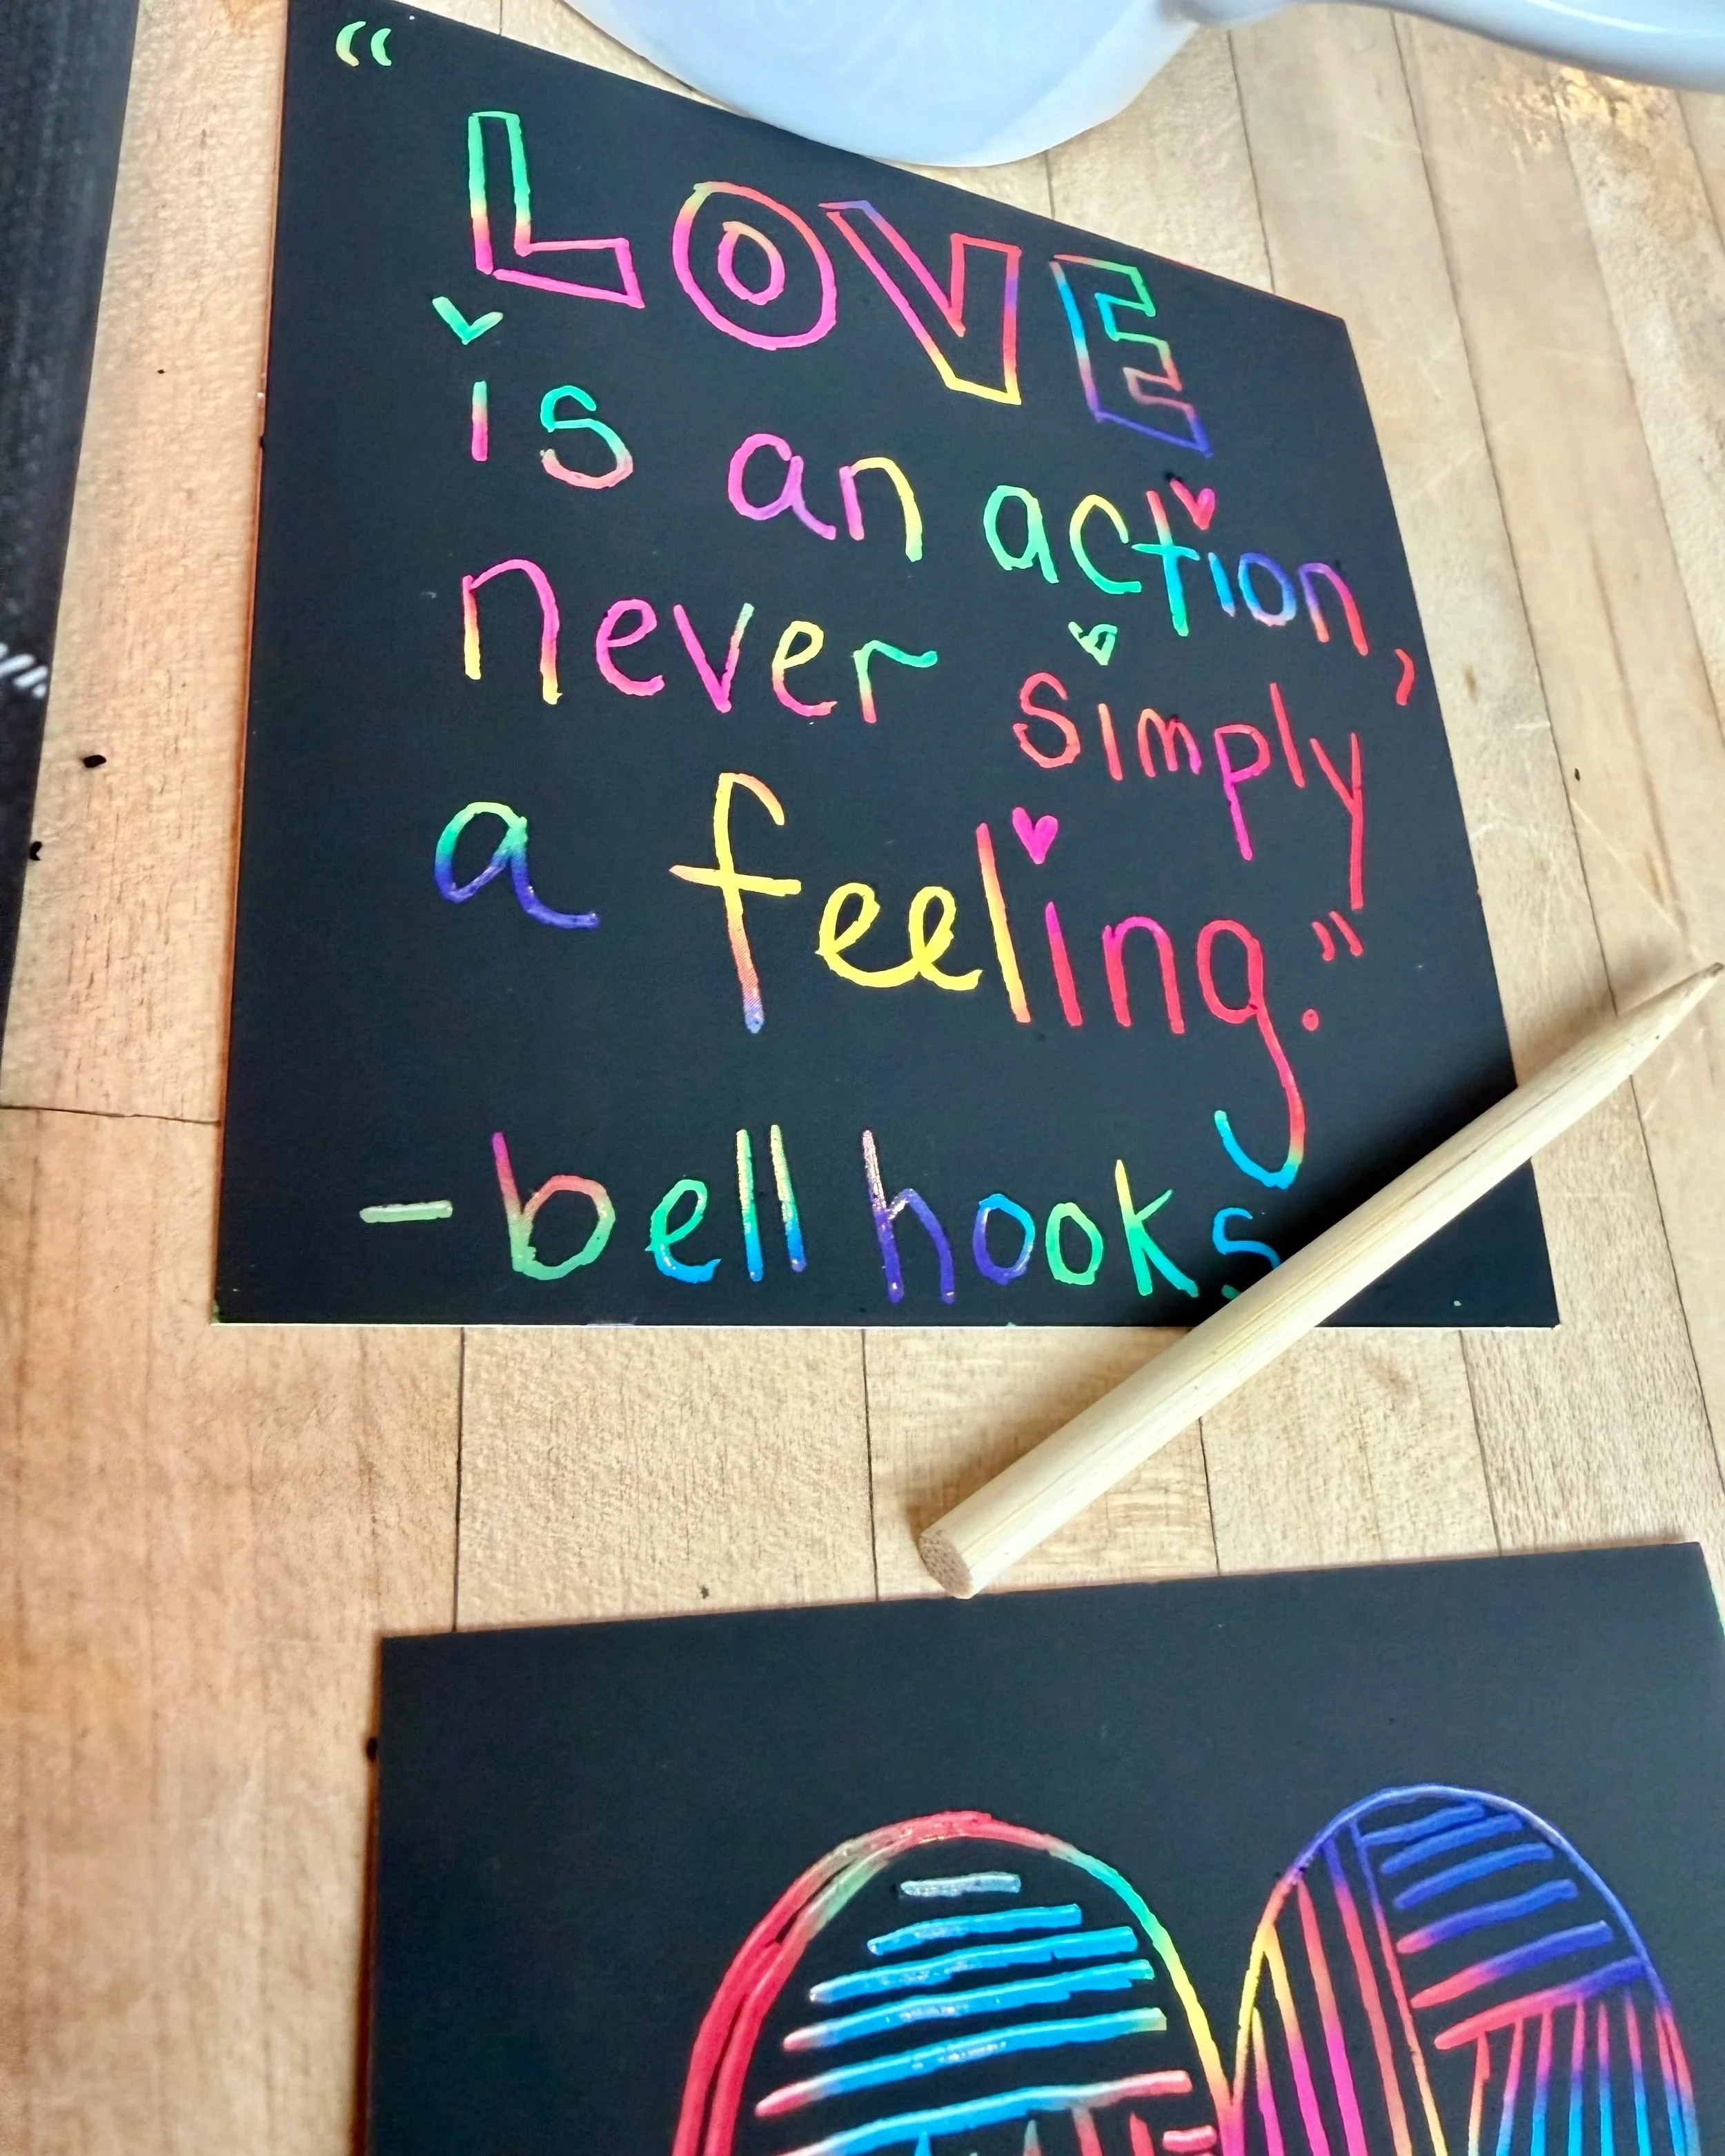 “LOVE
is an action,
never simply
a feeling.”
-bell hooks